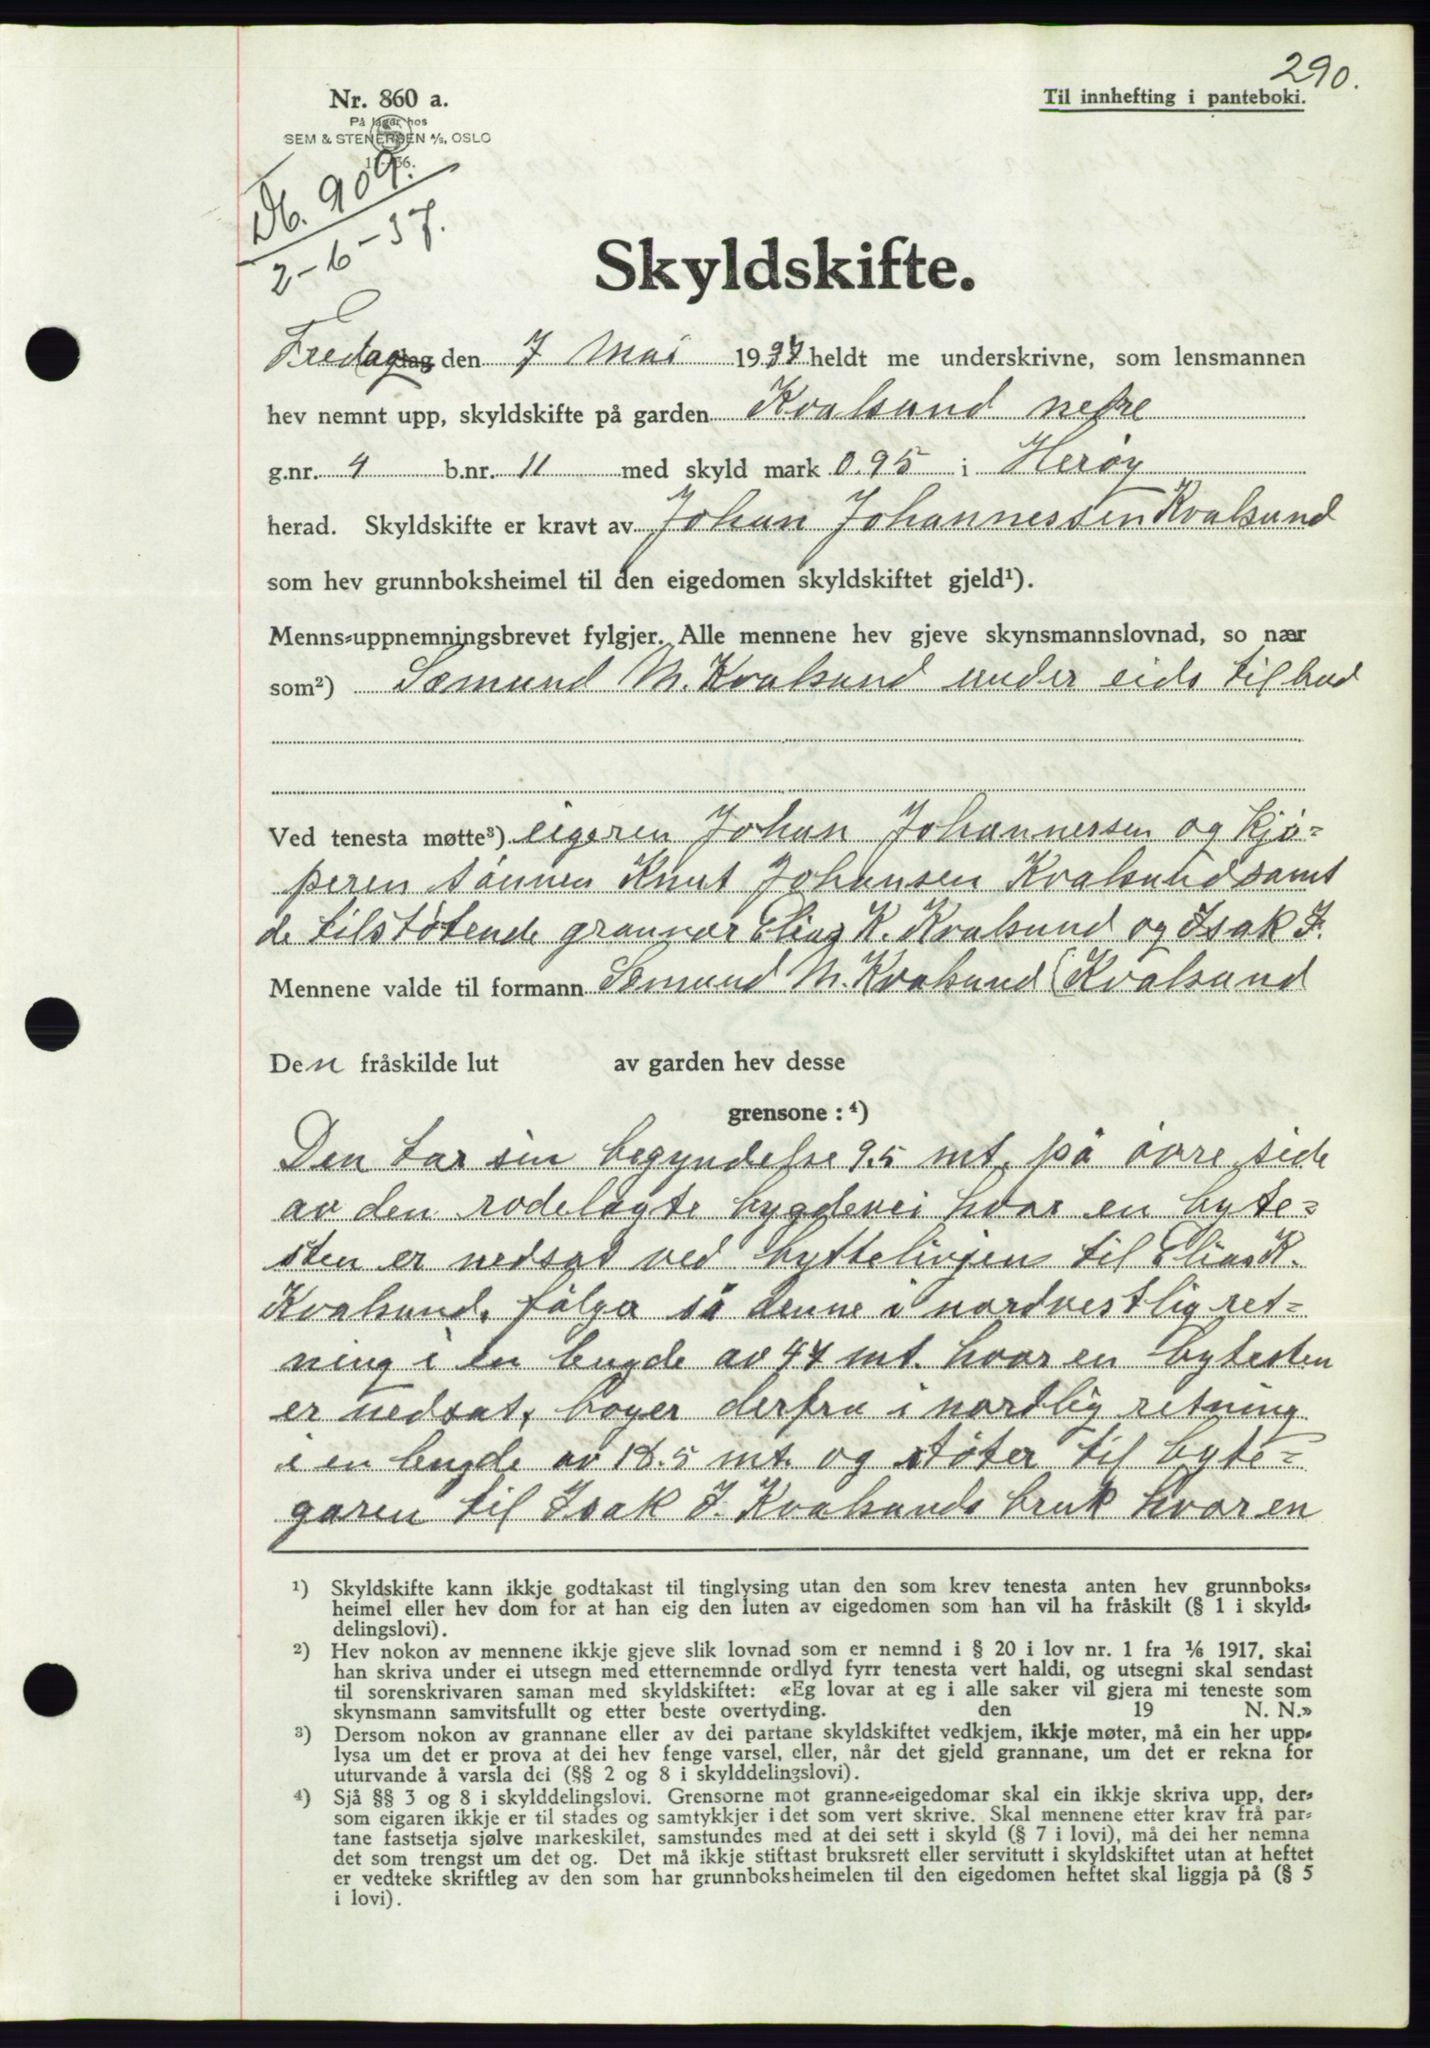 290.
Nr. 860 a.
Til innhefting i panteboki.
På lager hos
SEM & STENERSEN A/S, OSLO
Db. 909.
2-6-37.
Skyldskifte.
Fredag den 7 Mai 1937 heldt me underskrivne, som lensmannen
hev nemnt upp, skyldskifte på garden Kvalsund nedre
g.nr. 4 b.nr. 11 med skyld mark 0.95 i Herøy
herad. Skyldskifte er kravt av Johan Johannessen Kvalsund
som hev grunnboksheimel til den eigedomen skyldskiftet gjeld¹).
Menns-uppnemningsbrevet fylgjer. Alle mennene hev gjeve skynsmannslovnad, so nær
som²) Sæmund M. Kvalsund under eids tilbud
Ved tenesta møtte³) eigeren Johan Johannessen og kjø-
peren sønnen Knut Johansen Kvalsund samt
de tilstøtende grannar Elias K. Kvalsund og Isak J.
Mennene valde til formann Sæmund M. Kvalsund (Kvalsund
Den fråskilde lut av garden hev desse
grensone : ⁴)
Den tar sin begyndelse 9.5 mt. på øvre side
av den rodelagte bygdevei hvor en byte-
sten er nedsat ved byttelinjen til Elias K.
Kvalsund, følger så denne i nordvestlig ret-
ning i en lengde av 47 mt. hvor en bytesten
er nedsat, bøyer derfra i nordlig retning
i en lengde av 18.5 mt. og støter til byte-
garen til Isak J. Kvalsunds bruk hvor en
¹) Skyldskifte kann ikkje godtakast til tinglysing utan den som krev tenesta anten hev grunnboks-
heimel eller hev dom for at han eig den luten av eigedomen som han vil ha fråskilt (§ 1 i skyld-
delingslovi).
²) Hev nokon av mennene ikkje gjeve slik lovnad som er nemnd i § 20 i lov nr. 1 fra ⅙ 1917, skal
han skriva under ei utsegn med etternemnde ordlyd fyrr tenesta vert haldi, og utsegni skal sendast
til sorenskrivaren saman med skyldskiftet: «Eg lovar at eg i alle saker vil gjera mi teneste som
skynsmann samvitsfullt og etter beste overtyding. den 19 N. N.»
³) Dersom nokon av grannane eller av dei partane skyldskiftet vedkjem, ikkje møter, må ein her upp-
lysa um det er prova at dei hev fenge varsel, eller, når det gjeld grannane, um det er rekna for
uturvande å varsla dei (§§ 2 og 8 i skylddelingslovi).
⁴) Sjå §§ 3 og 8 i skylddelingslovi. Grensorne mot granne-eigedomar skal ein ikkje skriva upp, der-
som eigaren ikkje er til stades og samtykkjer i det som vert skrive. Skal mennene etter krav frå par-
tane fastsetja sjølve markeskilet, samstundes med at dei sett i skyld (§ 7 i lovi), må dei her nemna
det som trengst um det og. Det må ikkje stiftast bruksrett eller servitutt i skyldskiftet utan at heftet
er vedteke skriftleg av den som har grunnboksheimelen til den eigedomen heftet skal liggja på (§ 5
i lovi).